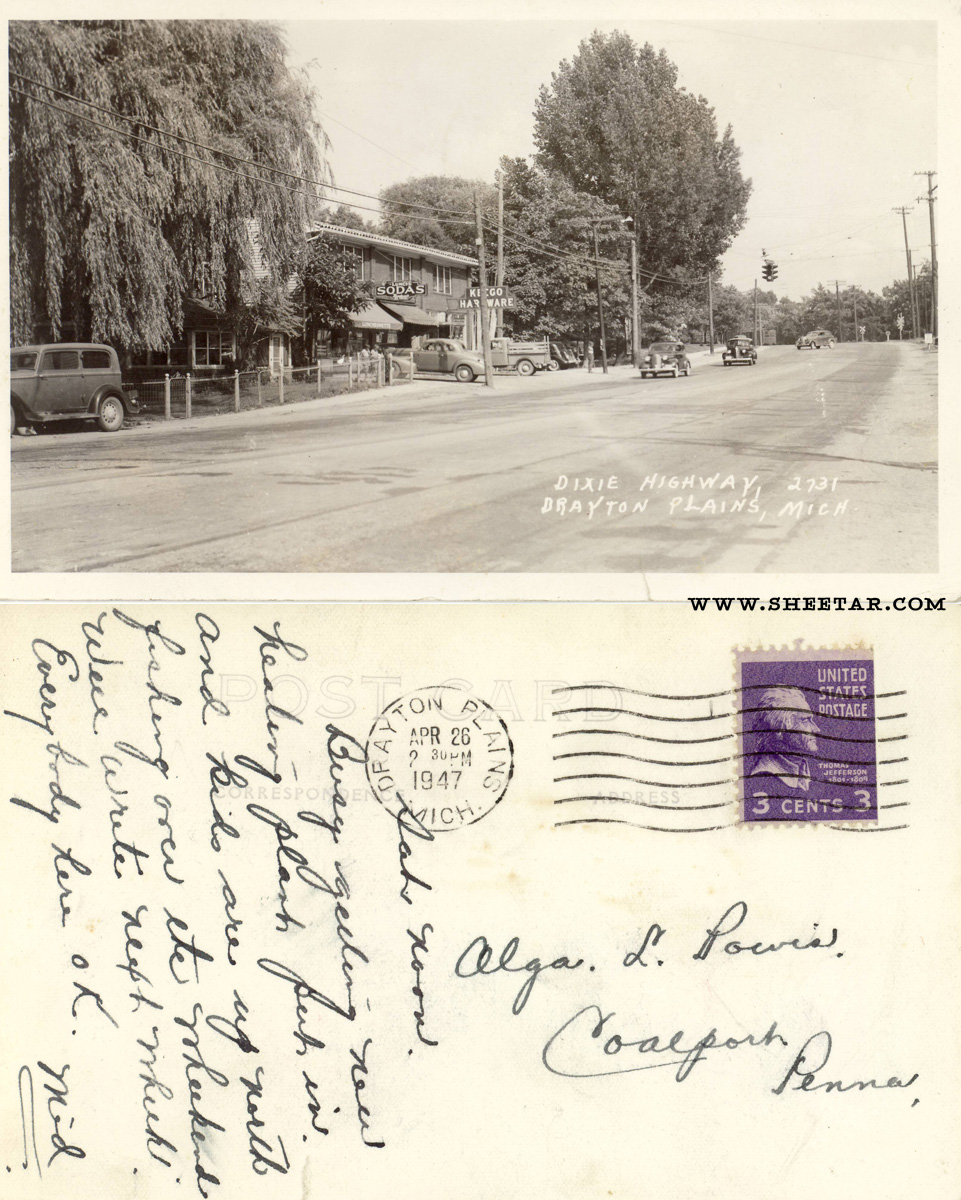 SODAS
KEEGO
HARDWARE
DIXIE HIGHWAY, 2731
DRAYTON PLAINS, MICH.
WWW.SHEETAR.COM
POST CARD
CORRESPONDENCE
ADDRESS
DRAYTON PLAINS
APR 26
2 30 PM
1947
MICH.
UNITED
STATES
POSTAGE
THOMAS
JEFFERSON
1801-1809
3 CENTS 3
Sat. noon.
Busy getting new
heating plant put in.
and kids are up north
fishing over the wheekend
Will write next wheek.
Everybody here o K. Mid
Olga. L. Powis.
Coalport
Penna,